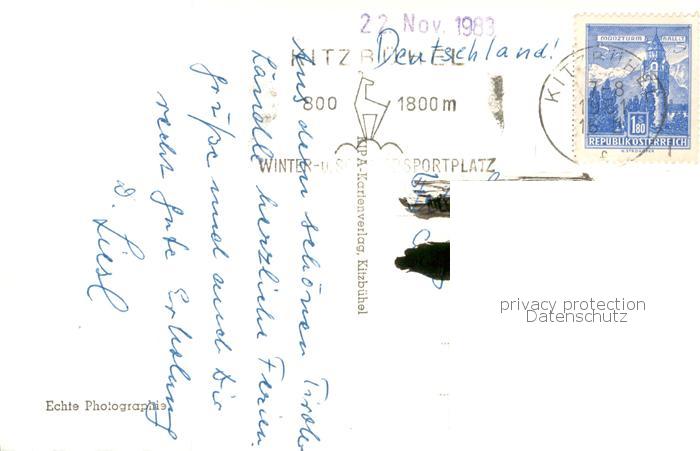 22 Nov. 1983
Deutschland!
KITZBÜHEL
800 1800 m
WINTER-u. SPORTPLATZ
MÜNZTURM HALL i. T.
1.80
REPUBLIK ÖSTERREICH
KITZBÜHEL
KIPA-Kartenverlag, Kitzbühel
Aus dem schönen Tiroler
Ländle herzliche Ferien
grüße und auch Dir
recht gute Erholung
D. Liesl
Echte Photographie
privacy protection
Datenschutz